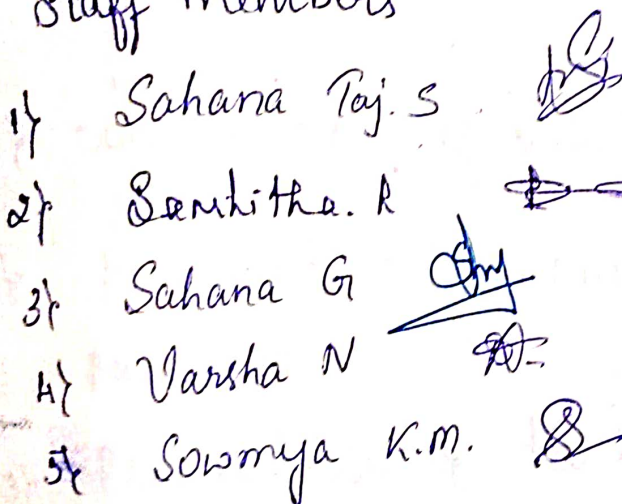 Staff Members
1) Sahana Taj. S
2) Samhitha. R
3) Sahana G
4) Varsha N
5) Sowmya K.M.